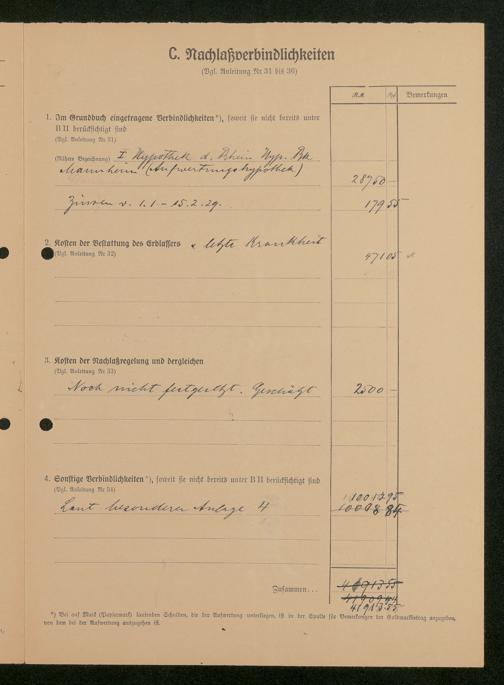 C. Nachlaßverbindlichkeiten
(Vgl. Anleitung Nr 31 bis 36)
RM Pf Bemerkungen
1. Im Grundbuch eingetragene Verbindlichkeiten*), soweit sie nicht bereits unter
B II berücksichtigt sind
(Vgl. Anleitung Nr 31)
(Nähere Bezeichnung) I Hypothek d. Rhein Hyp. Bk.
Mannheim (Aufwertungshypothek) 28750 –
Zinsen v. 1.1 – 15.2.29. 179 55
2. Kosten der Bestattung des Erblassers & letzte Krankheit
(Vgl. Anleitung Nr 32) 471 05
3. Kosten der Nachlaßregelung und dergleichen
(Vgl. Anleitung Nr 33)
Noch nicht festgesetzt. Geschätzt 2500 –
4. Sonstige Verbindlichkeiten*), soweit sie nicht bereits unter B II berücksichtigt sind
(Vgl. Anleitung Nr 34)
10012 95
Laut besonderer Anlage 4
Zusammen...
41913 55
*) Bei auf Mark (Papiermark) lautenden Schulden, die der Aufwertung unterliegen, ist in der Spalte für Bemerkungen der Goldmarkbetrag anzugeben,
von dem bei der Aufwertung auszugehen ist.